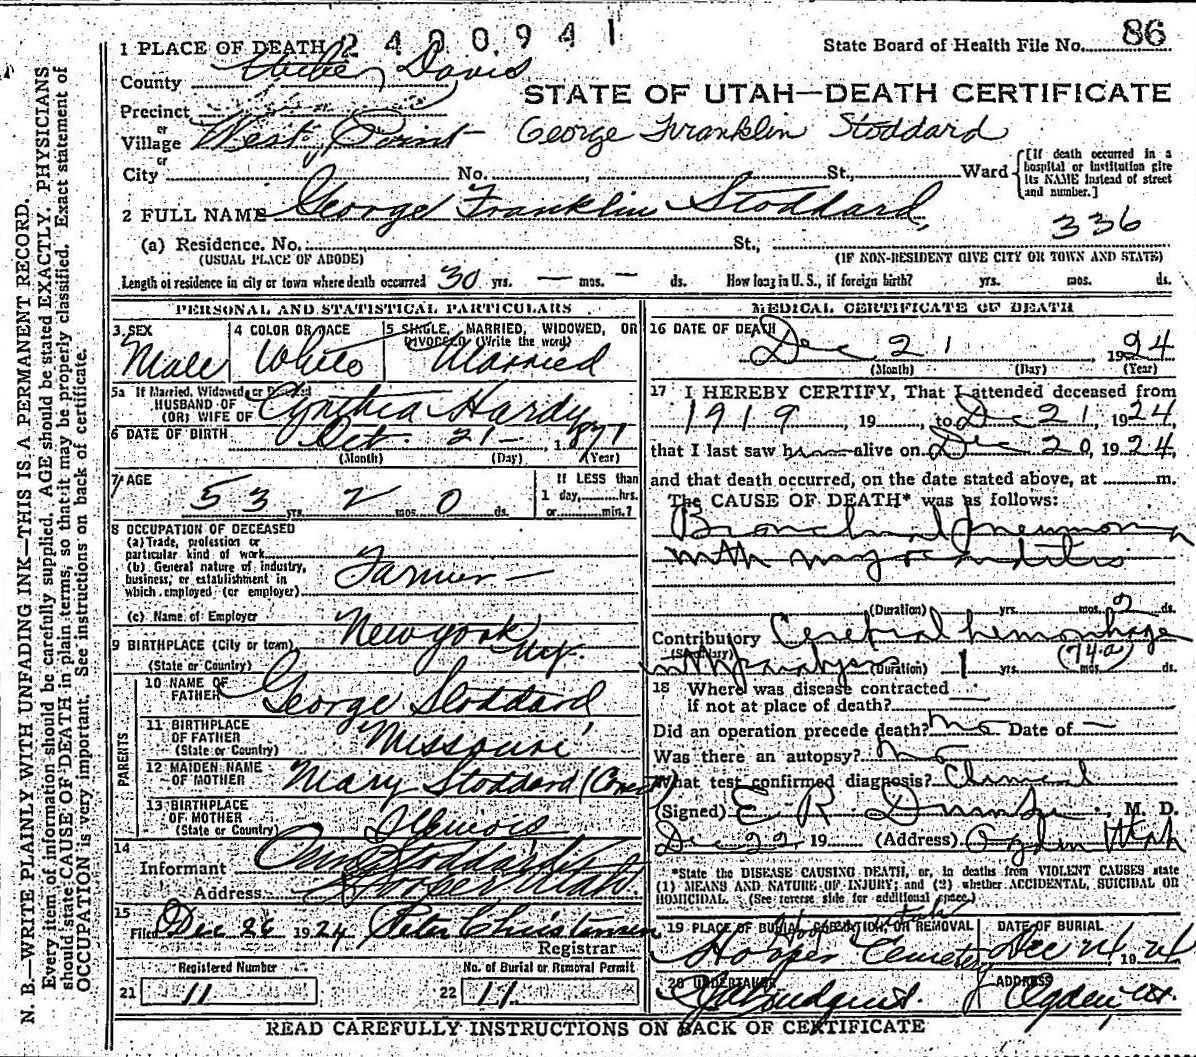 N. B.—WRITE PLAINLY WITH UNFADING INK—THIS IS A PERMANENT RECORD.
Every item of information should be carefully supplied. AGE should be stated EXACTLY. PHYSICIANS
should state CAUSE OF DEATH in plain terms, so that it may be properly classified. Exact statement of
OCCUPATION is very important. See instructions on back of certificate.
2420941
86
1 PLACE OF DEATH
State Board of Health File No.
County Davis
STATE OF UTAH—DEATH CERTIFICATE
Precinct
or
Village West Point
George Franklin Stoddard
or
City No. St., Ward
[If death occurred in a
hospital or institution give
its NAME instead of street
and number.]
2 FULL NAME George Franklin Stoddard
336
(a) Residence. No. St.,
(USUAL PLACE OF ABODE) (IF NON-RESIDENT GIVE CITY OR TOWN AND STATE)
Length of residence in city or town where death occurred 30 yrs. — mos. — ds. How long in U. S., if foreign birth? yrs. mos. ds.
PERSONAL AND STATISTICAL PARTICULARS
3 SEX
Male
4 COLOR OR RACE
White
5 SINGLE, MARRIED, WIDOWED, OR
DIVORCED (Write the word)
Married
5a If Married, Widowed or Divorced
HUSBAND OF
(OR) WIFE OF Cynthia Hardy
6 DATE OF BIRTH Oct. 21 — 1871
(Month) (Day) (Year)
7 AGE
53 yrs. 2 mos. 0 ds.
If LESS than
1 day, hrs.
or min.?
8 OCCUPATION OF DECEASED
(a) Trade, profession or
particular kind of work
(b) General nature of industry,
business, or establishment in
which employed (or employer)
Farmer —
(c) Name of Employer
9 BIRTHPLACE (City or town) New York
(State or Country) N.Y.
PARENTS
10 NAME OF
FATHER George Stoddard
11 BIRTHPLACE
OF FATHER
(State or Country) Missouri
12 MAIDEN NAME
OF MOTHER Mary Stoddard
13 BIRTHPLACE
OF MOTHER
(State or Country) Illinois
14
Informant Stoddard
Address Hooper Utah.
15
Filed Dec 26 1924 Peter Christensen
Registrar
Registered Number
21 11
No. of Burial or Removal Permit
22 11
MEDICAL CERTIFICATE OF DEATH
16 DATE OF DEATH
Dec 21, 1924
(Month) (Day) (Year)
17 I HEREBY CERTIFY, That I attended deceased from
1919, 19, to Dec 21, 1924,
that I last saw him alive on Dec 20, 1924,
and that death occurred, on the date stated above, at m.
The CAUSE OF DEATH* was as follows:
Bronchial pneumonia
with myocarditis
(Duration) yrs. mos. 2 ds.
Contributory Cerebral hemorrhage
(Secondary)
with paralysis (Duration) 1 yrs. mos. ds.
(74a)
18 Where was disease contracted —
if not at place of death?
Did an operation precede death? no Date of —
Was there an autopsy? no
What test confirmed diagnosis? Clinical
(Signed) E R M. D.
Dec 22, 19 (Address) Ogden Utah
*State the DISEASE CAUSING DEATH, or, in deaths from VIOLENT CAUSES state
(1) MEANS AND NATURE OF INJURY; and (2) whether ACCIDENTAL, SUICIDAL OR
HOMICIDAL. (See reverse side for additional space.)
19 PLACE OF BURIAL, CREMATION, OR REMOVAL
Utah
Hooper Cemetery
DATE OF BURIAL
Dec 24 1924
20 UNDERTAKER
Lindquist.
ADDRESS
Ogden, Ut.
READ CAREFULLY INSTRUCTIONS ON BACK OF CERTIFICATE